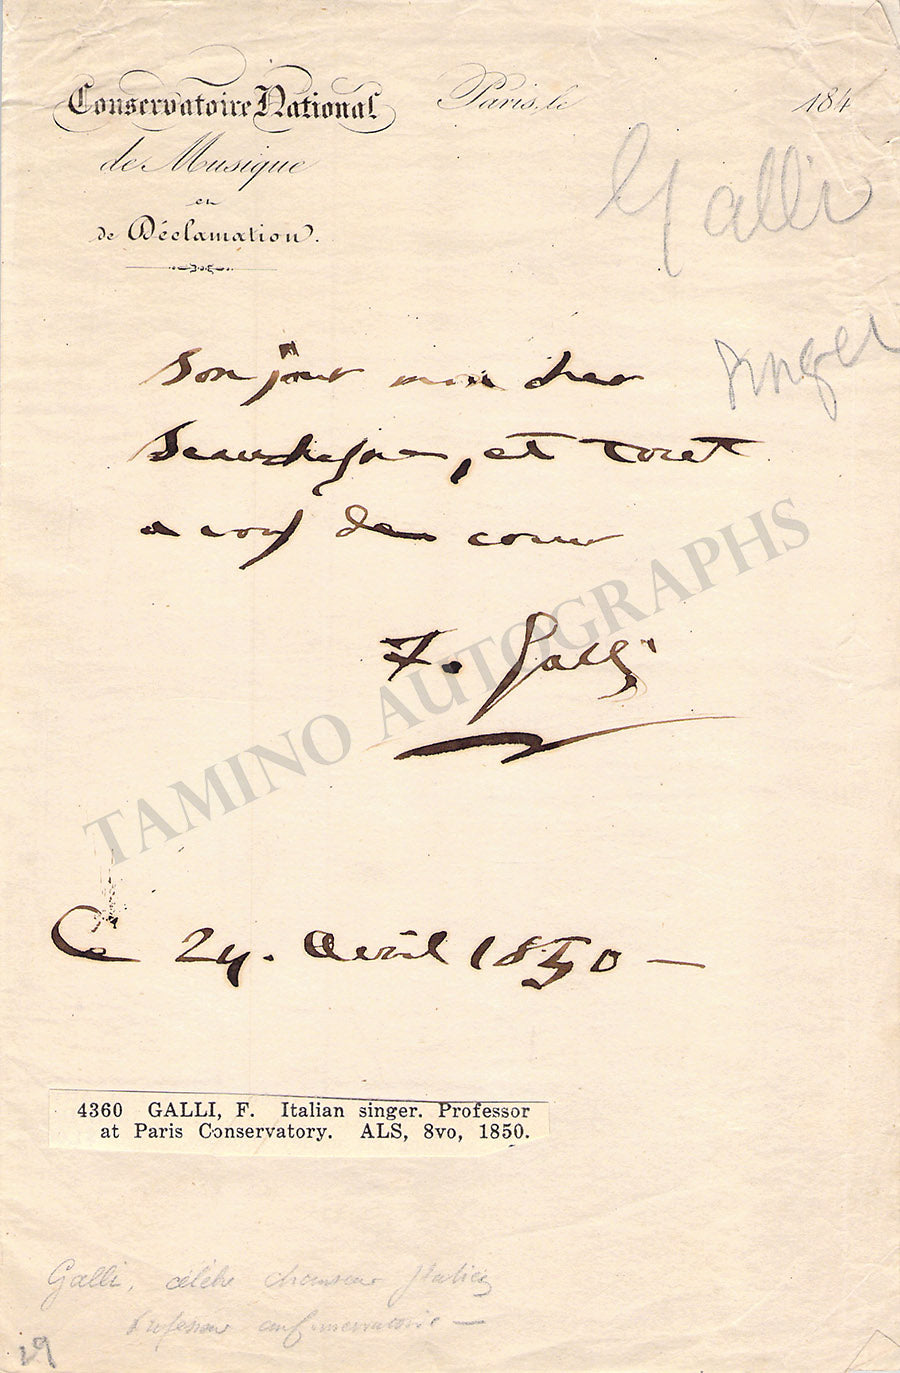 Conservatoire National
de Musique
et
de Déclamation.
Paris, le 184
Galli
Singer
Bonjour mon cher
Beauchesne, et tout
a vous de cœur
F. Galli
Ce 24. Avril 1850 —
TAMINO AUTOGRAPHS
4360 GALLI, F. Italian singer. Professor
at Paris Conservatory. ALS, 8vo, 1850.
Galli, célèbre chanteur Italien
Professeur au Conservatoire —
29